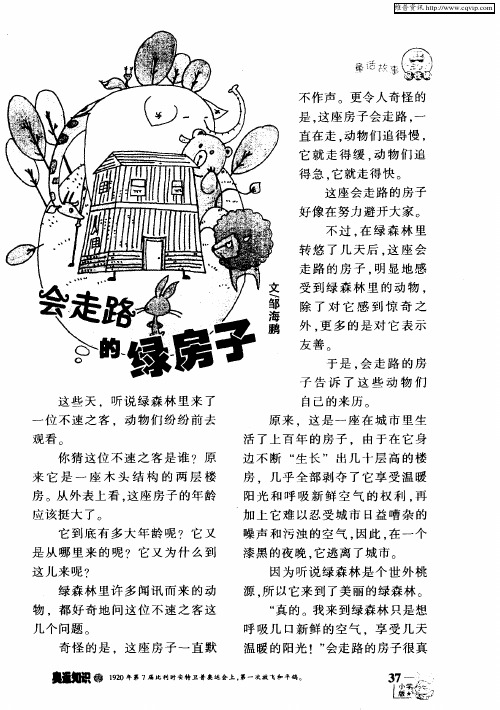 维普资讯 http://www.cqvip.com
童话故事
会走路
的绿房子
文/邹海鹏
这些天，听说绿森林里来了
一位不速之客，动物们纷纷前去
观看。
你猜这位不速之客是谁？原
来它是一座木头结构的两层楼
房。从外表上看,这座房子的年龄
应该挺大了。
它到底有多大年龄呢？它又
是从哪里来的呢？它又为什么到
这儿来呢？
绿森林里许多闻讯而来的动
物，都好奇地问这位不速之客这
几个问题。
奇怪的是，这座房子一直默
不作声。更令人奇怪的
是,这座房子会走路,一
直在走,动物们追得慢,
它就走得缓,动物们追
得急,它就走得快。
这座会走路的房子
好像在努力避开大家。
不过,在绿森林里
转悠了几天后,这座会
走路的房子,明显地感
受到绿森林里的动物,
除了对它感到惊奇之
外,更多的是对它表示
友善。
于是,会走路的房
子告诉了这些动物们
自己的来历。
原来，这是一座在城市里生
活了上百年的房子，由于在它身
边不断“生长”出几十层高的楼
房，几乎全部剥夺了它享受温暖
阳光和呼吸新鲜空气的权利,再
加上它难以忍受城市日益嘈杂的
噪声和污浊的空气,因此,在一个
漆黑的夜晚,它逃离了城市。
因为听说绿森林是个世外桃
源,所以它来到了美丽的绿森林。
“真的。我来到绿森林只是想
呼吸几口新鲜的空气，享受几天
温暖的阳光！”会走路的房子很真
奥运知识 1920年第7届比利时安特卫普奥运会上,第一次放飞和平鸽。
37
小学版